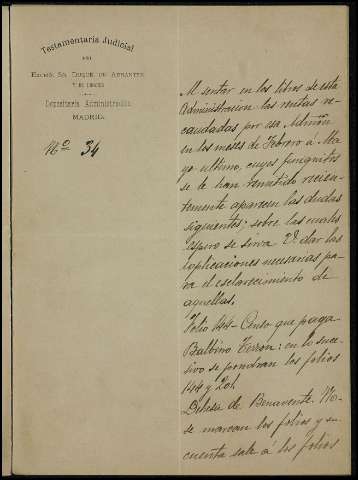 Testamentaría Judicial
DEL
EXCMO. SR. DUQUE DE ABRANTES
Y DE LINARES
Depositaría Administración
MADRID.
Nº 34
Al sentar en los libros de esta
Administración las rentas re-
caudadas por esa Admón
en los meses de Febrero á Ma-
yo ultimo, cuyos finiquitos
se le han remitido recien-
temente aparecen las dudas
siguientes; sobre las cuales
espero se sirva V. dar las
esplicaciones necesarias pa-
ra el esclarecimiento de
aquellas.
Folio 144 - Censo que paga
Balbino Terron: en lo suce-
sivo se pondran los folios
144 y 201.
Dehesa de Benavente. No
se marcan los folios y su
cuenta sale á los folios